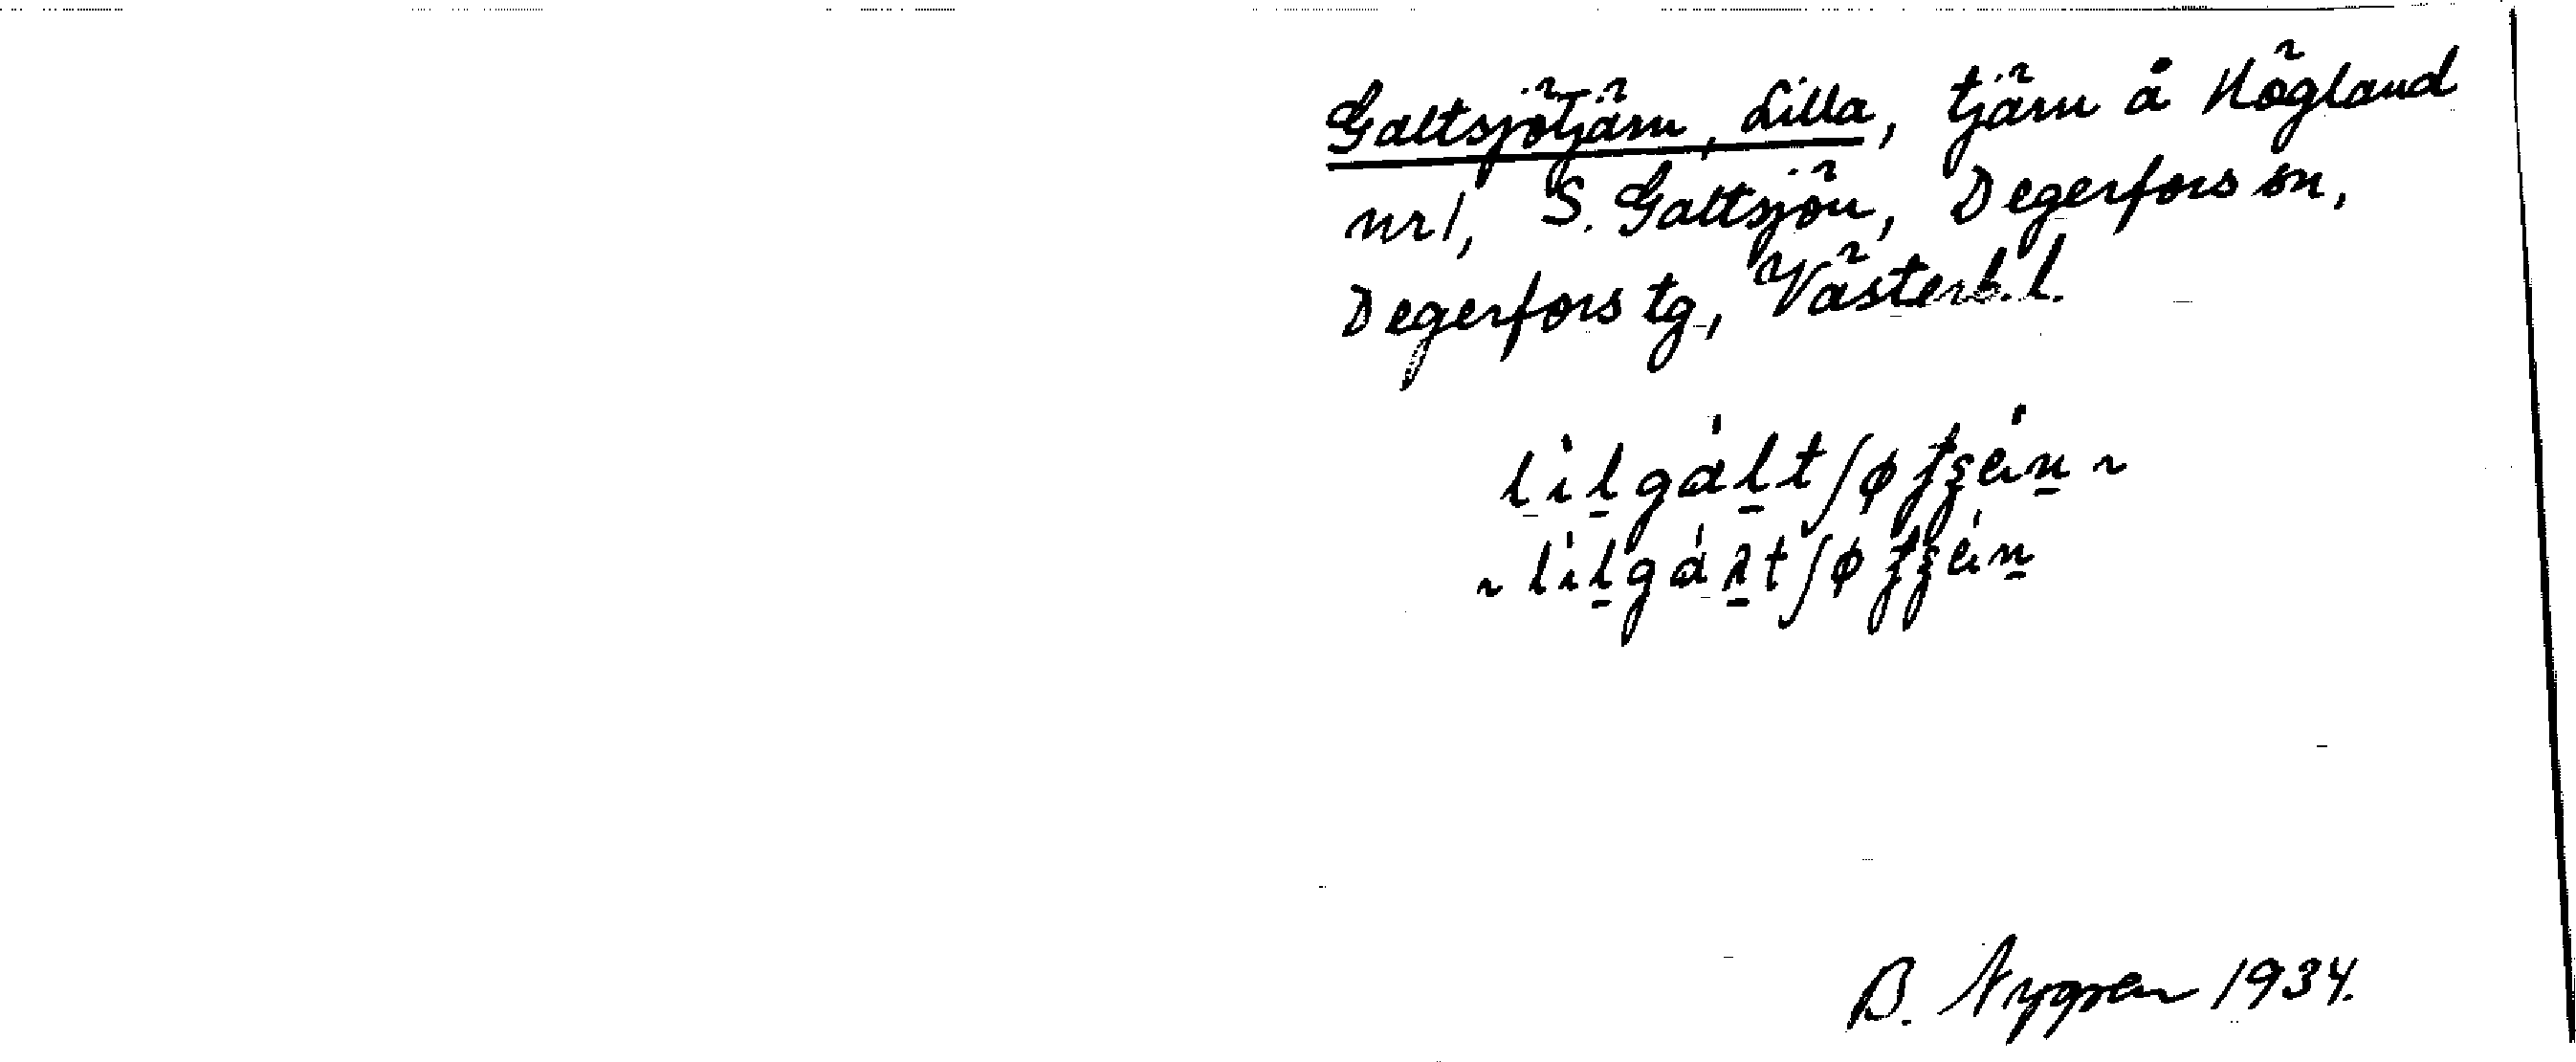 Galtsjötjärn, Lilla, tjärn å Högland
nr 1, S. Galtsjön, Degerfors sn,
Degerfors tg, Västerb. l.
B. Nygren 1934.